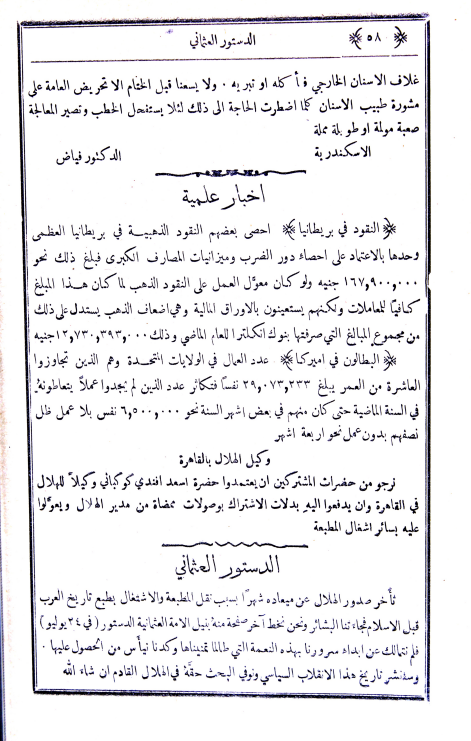 ﴿ ٥٨ ﴾ الدستور العثماني
غلاف الاسنان الخارجي فتأكله او تبريه ٠ ولا يسعنا قبل الختام الا تحريض العامة على
مشورة طبيب الاسنان كما اضطرت الحاجة الى ذلك لئلا يستفحل الخطب وتصير المعالجة
صعبة مولمة او طويلة مملة
الاسكندرية الدكتور فياض
اخبار علمية
﴿ النقود في بريطانيا ﴾ احصى بعضهم النقود الذهبية في بريطانيا العظمى
وحدها بالاعتماد على احصاء دور الضرب وميزانيات المصارف الكبرى فبلغ ذلك نحو
١٦٧,٩٠٠,٠٠٠ جنيه ولو كان معوَّل العمل على النقود الذهب لما كان هذا المبلغ
كافيًا للمعاملات ولكنهم يستعينون بالاوراق المالية وهي اضعاف الذهب يستدل على ذلك
من مجموع المبالغ التي صرفتها بنوك انكلترا للعام الماضي وذلك ١٢,٧٣٠,٣٩٣,٠٠٠ جنيه
﴿ البطالون في اميركا ﴾ عدد العمال في الولايات المتحدة وهم الذين تجاوزوا
العاشرة من العمر يبلغ ٢٩,٠٧٣,٢٣٣ نفسًا فتكاثر عدد الذين لم يجدوا عملاً يتعاطونهُ
في السنة الماضية حتى كان منهم في بعض اشهر السنة نحو ٦,٥٠٠,٠٠٠ نفس بلا عمل ظل
نصفهم بدون عمل نحو اربعة اشهر
وكيل الهلال بالقاهرة
نرجو من حضرات المشتركين ان يعتمدوا حضرة اسعد افندي كوكباني وكيلاً للهلال
في القاهرة وان يدفعوا اليهِ بدلات الاشتراك بوصولات ممضاة من مدير الهلال ويعوّلوا
عليه بسائر اشغال المطبعة
الدستور العثماني
تأخر صدور الهلال عن ميعاده شهرًا بسبب نقل المطبعة والاشتغال بطبع تاريخ العرب
قبل الاسلام فجاءتنا البشائر ونحن نخط آخر صفحة منهُ بنيل الامة العثمانية الدستور (في ٢٤ يوليو)
فلم نتمالك عن ابداء سرورنا بهذه النعمة التي طالما تمنيناها وكدنا نيأس من الحصول عليها ٠
وسننشر تاريخ هذا الانقلاب السياسي ونوفي البحث حقهُ في الهلال القادم ان شاء الله